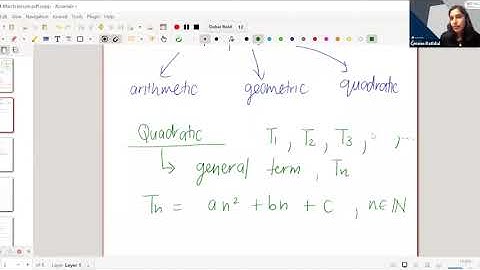 File Edit View Navigation Journal Tools Plugin Help
Dubai Bold 12
arithmetic geometric quadratic
Quadratic T1, T2, T3, ...
↳ general term, Tn
Tn = an² + bn + c, n∈ℕ
Layer Layer 1